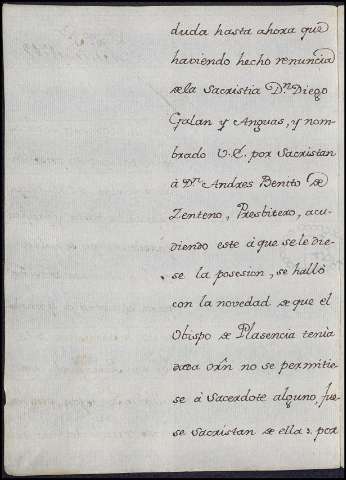 duda hasta ahora que
haviendo hecho renuncia
de la Sacristia Dn. Diego
Galan y Anguas, y nom-
brado V.E. por Sacristan
à Dn. Andres Benito de
Zenteno, Presbitero, acu-
diendo este à que se le die-
se la posesion, se hallò
con la novedad de que el
Obispo de Plasencia tenia
dada orn̄ no se permitie-
se à Sacerdote alguno, fue-
se Sacristan de ella; por